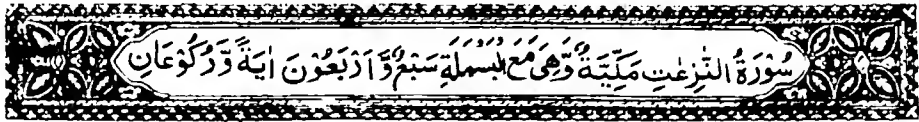 سُوْرَةُ النّٰزِعٰتِ مَكِّيَّةٌ وَّهِىَ مَعَ الْبَسْمَلَةِ سَبْعٌ وَّ اَرْبَعُوْنَ اٰيَةً وَّ رُكُوْعَانِ